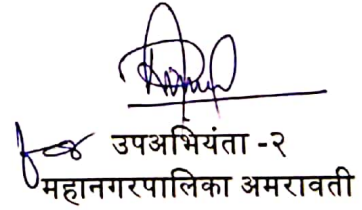 for उपअभियंता -२
महानगरपालिका अमरावती